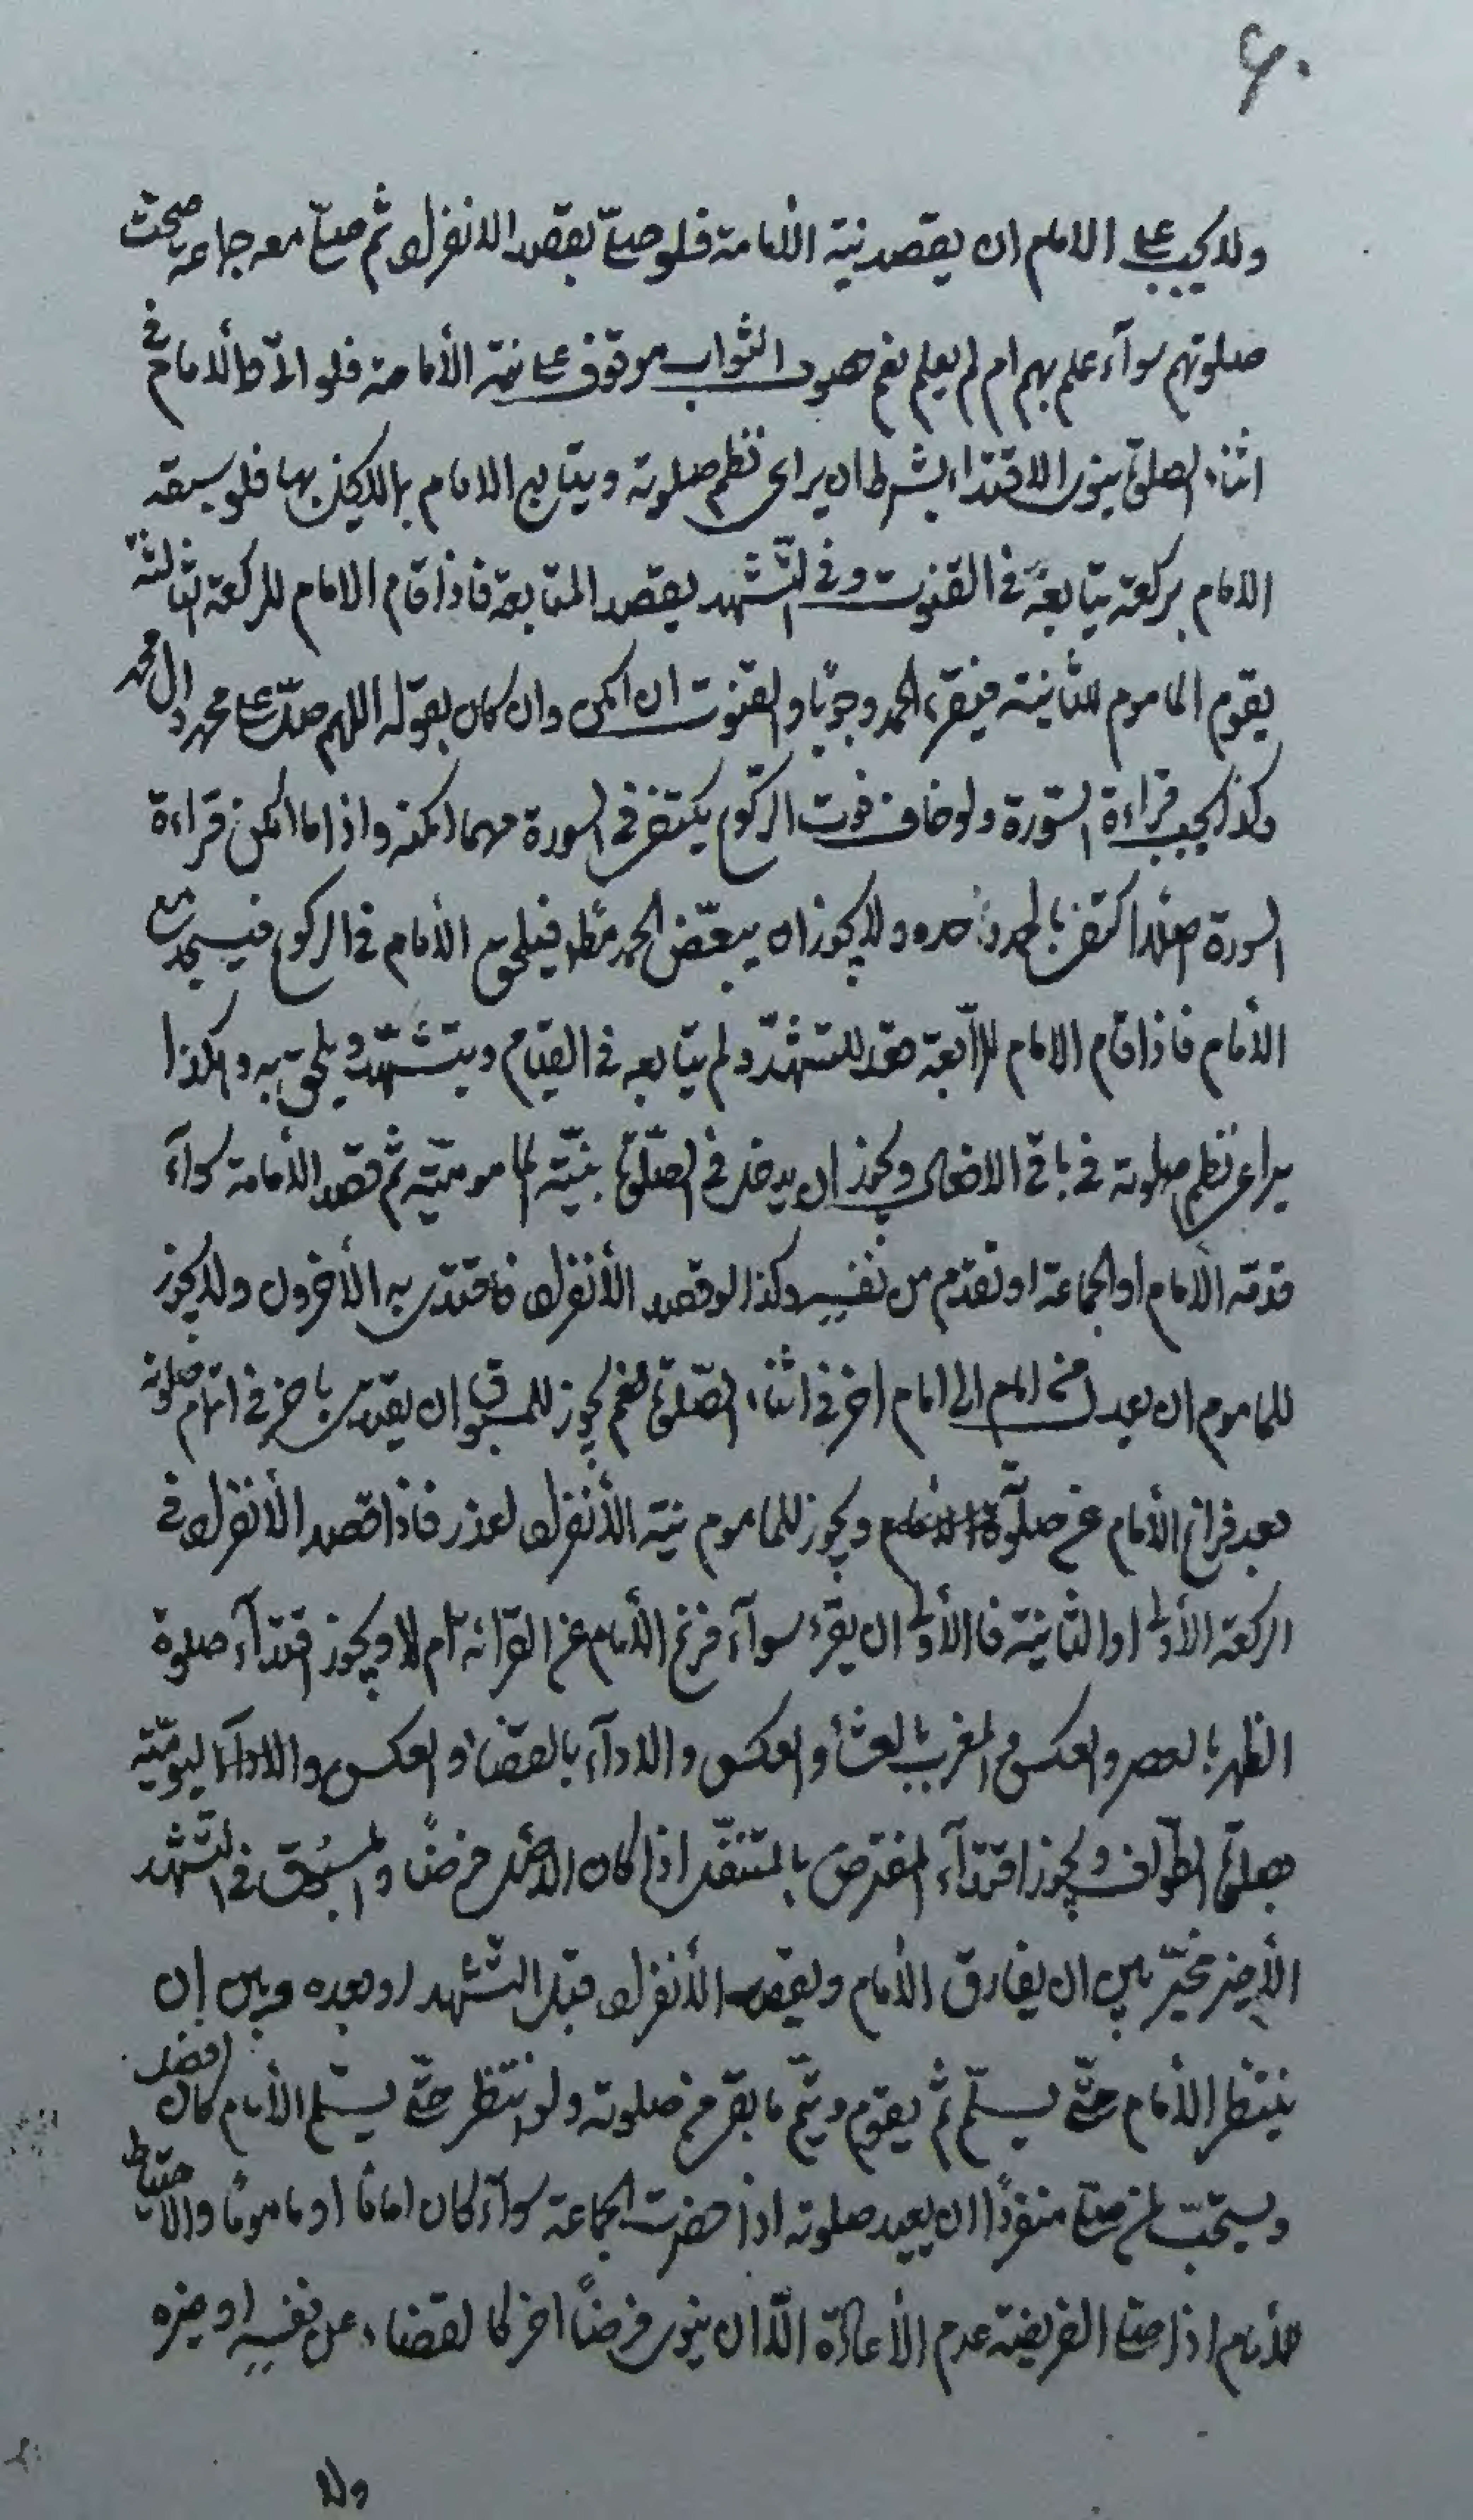 ۶۰
ولا يجب على الامام ان يقصد نية الأمامة فلو صلّى بقصد الانفراد ثم صلّى معه جماعة صحت
صلوتهم سوآء علم بهم ام لم يعلم نعم حصول الثواب موقوف على نية الأمامة فلو الأمام في
اثناء الصلوة ينوى الاقتداء بشرط ان يراعى نظم صلوته ويتابع الامام بها فلو سبقه
الامام بركعة يتابعه في القنوت وفي التّشهد بقصد المتابعة فاذا قام الامام للركعة الثالثة
يقوم الماموم للثانية فيقرء الحمد وجوبًا والقنوت ان امكن وان كان بقوله اللهم صلّ على محمد وال محمد
وكذا يجب قراءة السّورة ولو خاف فوت الركوع يكتفى في السورة مهما امكنه واذا ما امكن قراءة
السورة اصلًا اكتفى بالحمد وحده ولا يجوز ان يبعّض الحمد فيلحق الأمام في الركوع فيسجد مع
الأمام فاذا قام الامام للرّابعة قعد للتشهّد ولم يتابعه في القيام ويتشهّد ويلحق به وهكذا
يراعى نظم صلوته في باقى الافعال ويجوز ان يدخل في الصّلوة بنيّة المامومیّة ثم قصد الأمامة سوآء
قدمه الأمام او الجماعة او تقدم من نفسه وكذا لو قصد الأنفراد فاقتدى به الأخرون ولا يجوز
للماموم ان يعدل من امام الى امام اخر في اثناء الصّلوة نعم يجوز للمسبوق ان يقتدى باخر في اتمام صلوته
بعد فراغ الأمام عن صلوة ويجوز للماموم نية الأنفراد لعذر فاذا قصد الأنفراد في
الركعة الأولى او الثانية فالأولى ان يقرء سوآء فرغ الأمام عن القرائة ام لا ويجوز اقتدآء صلوة
الظهر بالعصر والعكس والمغرب بالعشاء والعكس والادآء بالقضاء والعكس والادآء اليوميّة
بصلوة الطّواف ويجوز اقتدآء المفترض بالمتنفّل اذا كان الأصل فرضًا والمسبوق في التّشهد
الأخير مخيّر بين ان يفارق الأمام ويقصد الأنفراد قبل التشهد او بعده وبين ان
ينتظر الأمام حتّى يسلّم ثم يقوم ويتمّ ما بقى من صلوته ولو انتظر حتّى يسلّم الأمام كان افضل
ويستحبّ لمن صلّى منفردًا ان يعيد صلوته اذا حضرت الجماعة سوآء كان امامًا او مامومًا والاحتياط
للأمام اذا صلّى الفريضة عدم الأعادة الّا ان ينوى فرضًا اخر كالقضاء عن نفسه او غيره
ولا